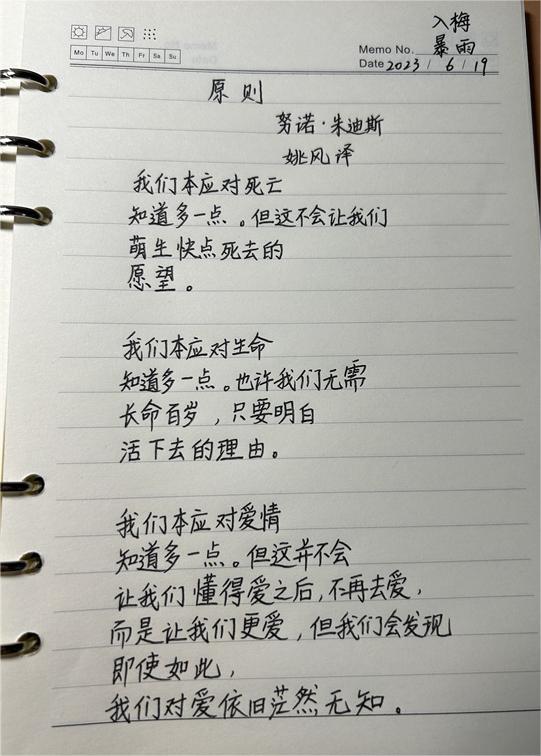 入梅
Mo Tu We Th Fr Sa Su
Memo No. 暴雨
Date 2023 / 6 / 19
原则
努诺·朱迪斯
姚风译
我们本应对死亡
知道多一点。但这不会让我们
萌生快点死去的
愿望。
我们本应对生命
知道多一点。也许我们无需
长命百岁，只要明白
活下去的理由。
我们本应对爱情
知道多一点。但这并不会
让我们懂得爱之后，不再去爱，
而是让我们更爱，但我们会发现
即使如此，
我们对爱依旧茫然无知。